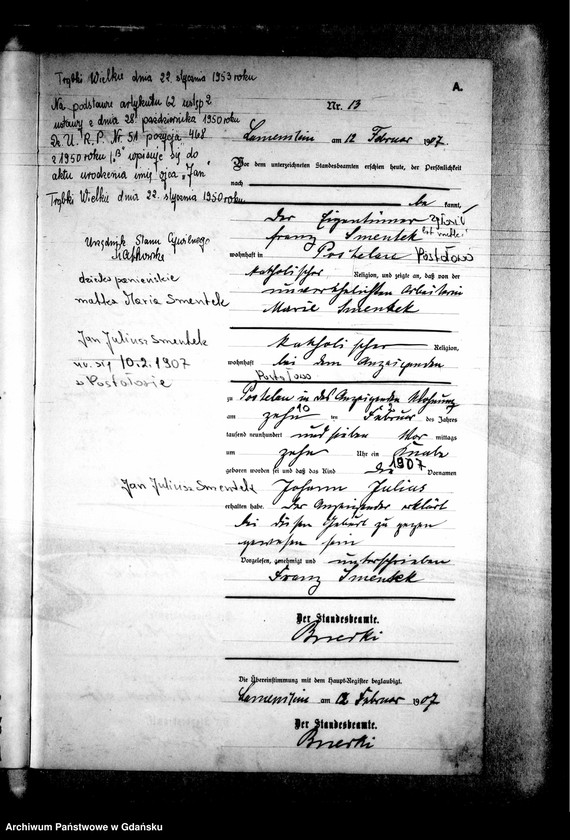 Trąbki Wielkie dnia 22 stycznia 1953 roku
Na podstawie artykułu 62 ustęp 2
ustawy z dnia 28 października 1950 roku
Dz. U. R. P. Nr. 51 pozycja 468
z 1950 roku wpisuje się do
aktu urodzenia imię ojca „Jan”
Trąbki Wielkie dnia 22. stycznia 1950 roku
Urzędnik Stanu Cywilnego
dziecko panieńskie
matka Maria Smentek
Jan Juliusz Smentek
ur. się 10.2.1907
w Postołowie
Jan Juliusz Smentek
A.
Nr. 13
Lamenstein am 12 Februar 1907.
Vor dem unterzeichneten Standesbeamten erschien heute, der Persönlichkeit
nach
kannt,
der Eigentümer
Franz Smentek
wohnhaft in Postelau Postołowo
katholischer Religion, und zeigte an, daß von der
unverehelichten Arbeiterin
Marie Smentek
katholischer Religion,
wohnhaft bei dem Anzeigenden
Postołowo
zu Postelau in des Anzeigenden Wohnung
am zehn 10 ten Februar des Jahres
tausend neunhundert und sieben Vor mittags
um zehn Uhr ein Knabe
1907
geboren worden sei und daß das Kind die Vornamen
Johann Julius
erhalten habe. Der Anzeigende erklärt
bei dieser Geburt zu gegen
gewesen sein
Vorgelesen, genehmigt und unterschrieben
Franz Smentek
Der Standesbeamte.
Die Übereinstimmung mit dem Haupt-Register beglaubigt.
Lamenstein am 12 Februar 1907
Der Standesbeamte.
Archiwum Państwowe w Gdańsku